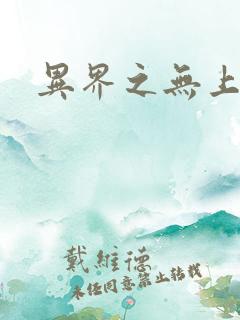 異界之無上
戴維德
未經同意禁止轉載